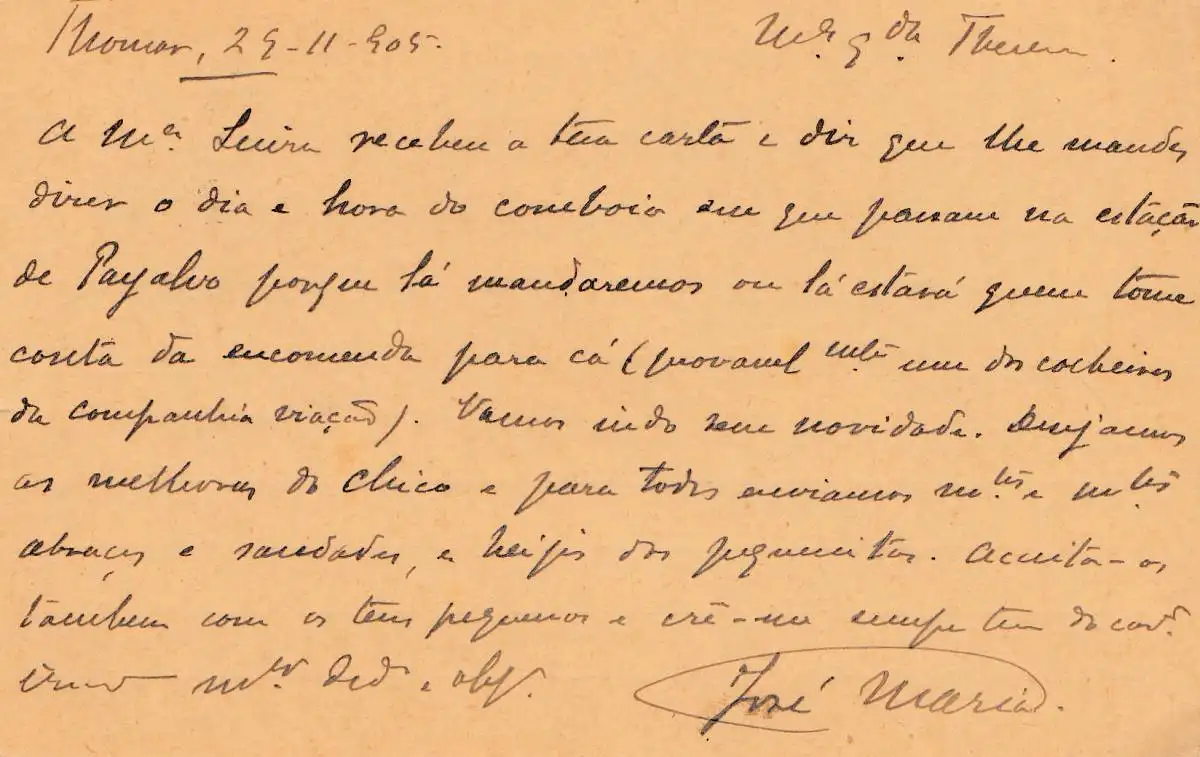 Thomar, 29-11-905. M.ª q.da Thereza.
A M.ª Luiza recebeu a tua carta e diz que lhe mandes
dizer o dia e hora do comboio em que passam na estação
de Payalvo porque lá mandaremos ou lá estará quem tome
conta da encomenda para cá (provavelmte um dos cocheiros
da companhia viação). Vamos indo sem novidade. Desejamos
as melhoras do Chico e para todos enviamos m.tos e m.tos
abraços e saudades, e beijos dos pequenitos. Aceita-os
tambem com os teus pequenos e crê-me sempre teu do cor.
irmão m.to ded.o e obg.
José Maria.